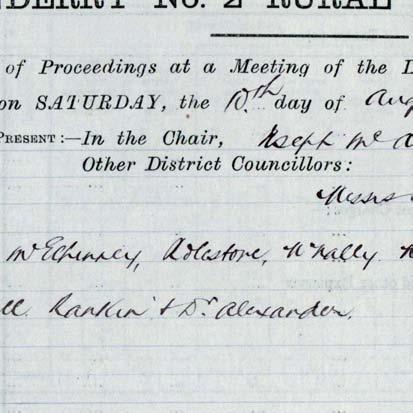 NDERRY No. 2 RURAL
of Proceedings at a Meeting of the L
on SATURDAY, the 10th day of Aug
PRESENT:—In the Chair, Joseph Mc A
Other District Councillors:
Messrs
McElhinney, McNally
Rankin & Dr Alexander.